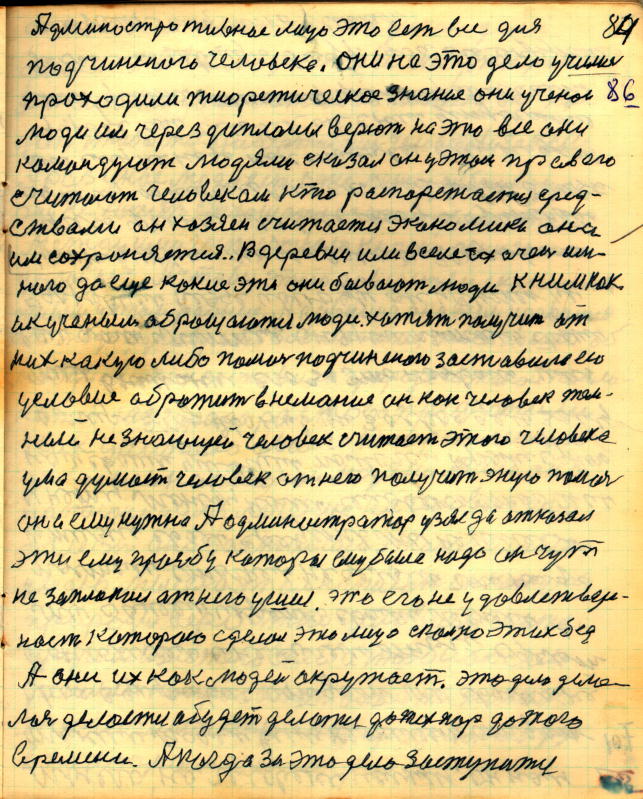 Админостротивное лицо это есть все для 84
подчиненого человека. они на это дело училис
проходили тиоретическое знание они ученои 86
люди им через дипломы верют на это все они
командуют людями сказал он у этом правого
считают человекам кто распорежается сред-
ствами он хозяен считается экономика она
им сохроняется.. В деревни или в селе их очен им-
ного да еще какие эти они бывают люди к ним как
и к ученым оброщаются люди. хотят получит от
них какую либо помоч подчиненого заставила его
условие обротит внемание он как человек тем-
ный не знающей человек считает этого человека
ума думает человек от него получит эную помоч
она ему нужна А админостратор узял да отказал
эти ему прозбу которая ему была надо он чут
не заплакал от него ушол. это его не удовлетвер-
ност которого сделал это лицо сколко этих бед
А они их как людей окружает. это дело дела-
лос делается и будет делатся до тех пор до того
времени. А когда за это дело заступится